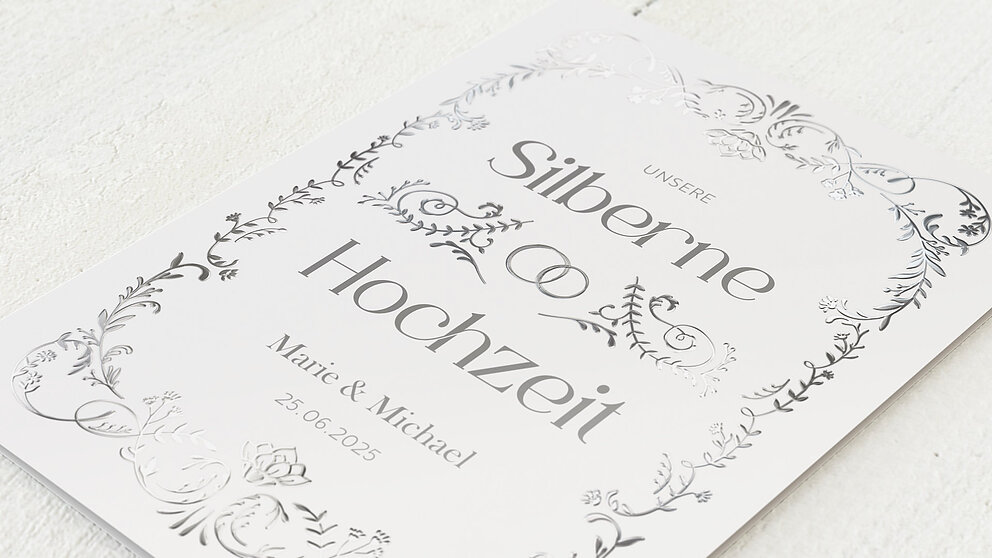 UNSERE
Silberne
Hochzeit
Marie & Michael
25.06.2025